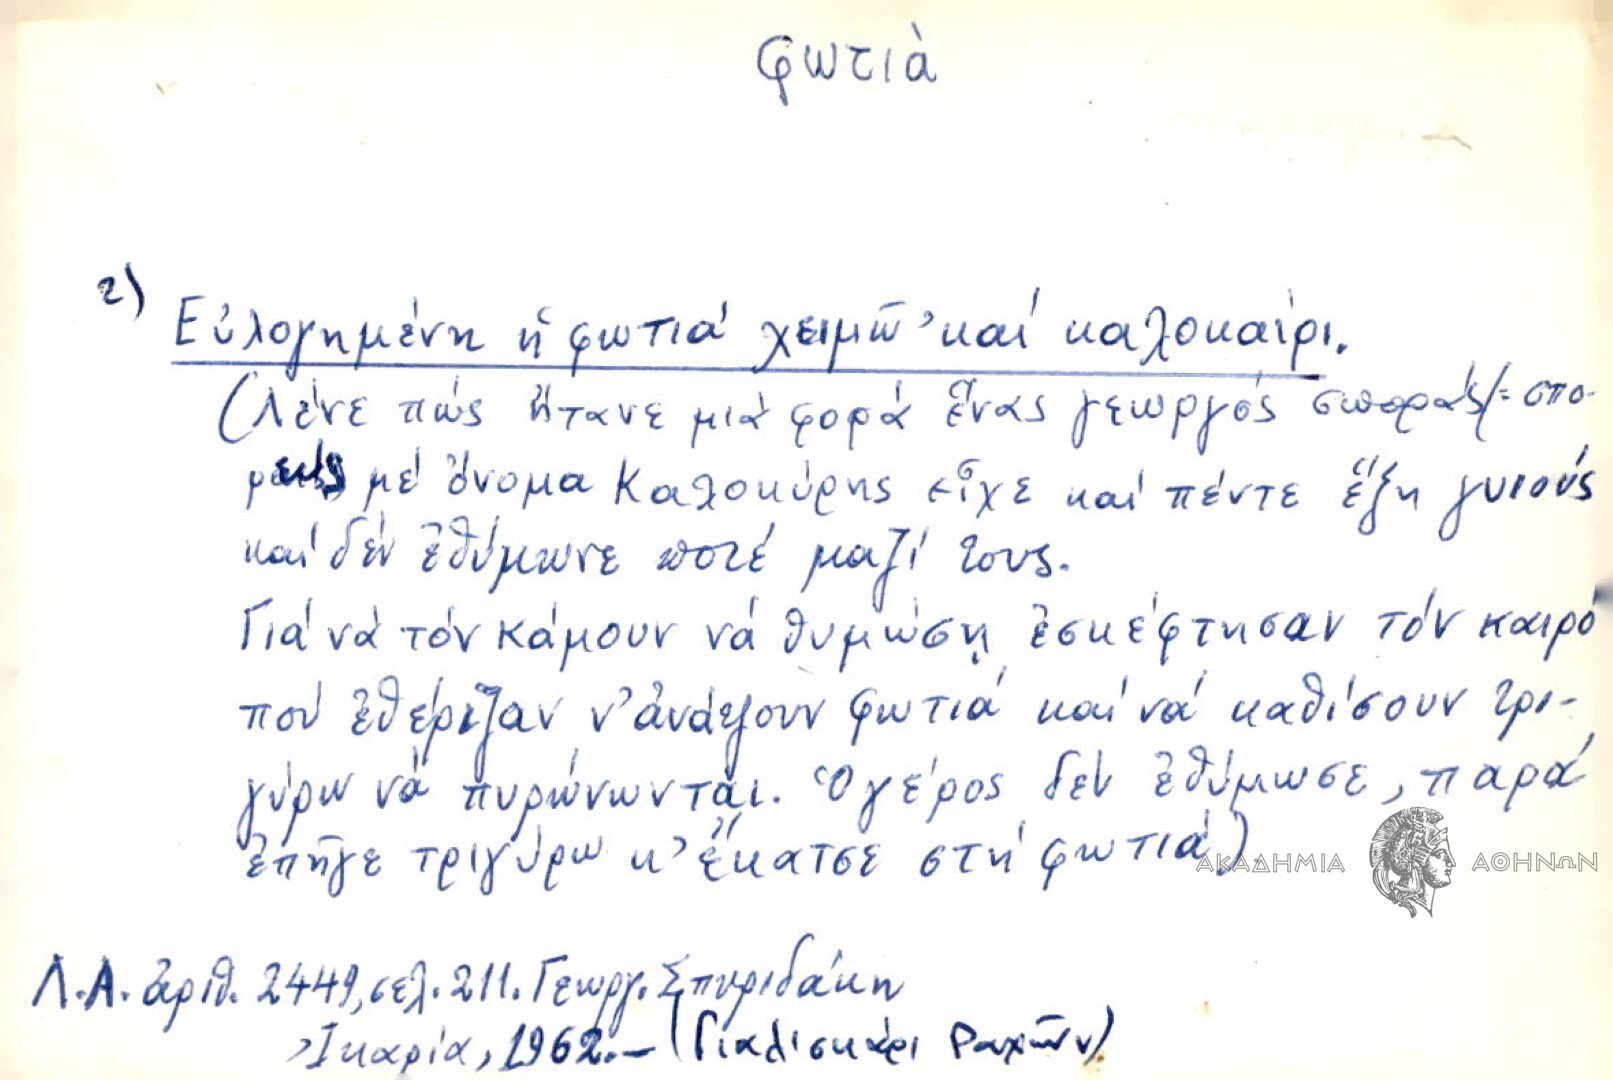 φωτιὰ
2) Εὐλογημένη ἡ φωτιά χειμῶ᾿ καί καλοκαίρι.
(Λένε πώς ἤτανε μιά φορά ἕνας γεωργός σποράς (= σπο-
ρεύς) μέ ὄνομα Καλοκύρης εἶχε καί πέντε ἕξη γυιούς
καί δέν ἐθύμωνε ποτέ μαζί τους.
Γιά νά τόν κάμουν νά θυμώσῃ ἐσκέφτησαν τόν καιρό
πού ἐθέριζαν ν᾿ ἀνάψουν φωτιά καί νά καθίσουν τρι-
γύρω νά πυρώνωνται. Ὁ γέρος δέν ἐθύμωσε, παρά
ἐπῆγε τριγύρω κ᾿ ἔκατσε στή φωτιά)
ΑΚΑΔΗΜΙΑ ΑΘΗΝΩΝ
Λ.Α. ἀριθ. 2449, σελ. 211. Γεωργ. Σπυριδάκη
Ἰκαρία, 1962.— (Γιαλισκάρι Ραχῶν)